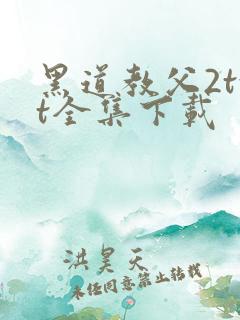 黑道教父2tx
t全集下载
洪昊天
未经同意禁止转载